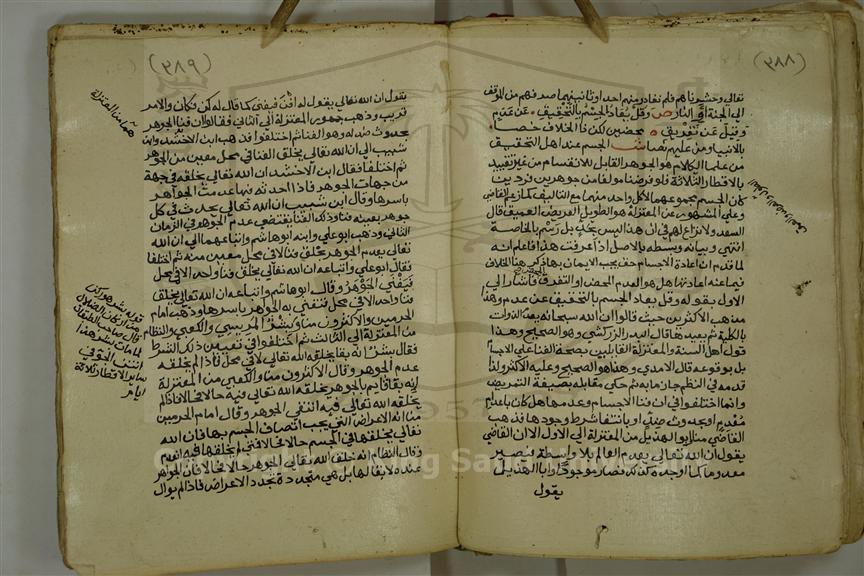 (٣٨٨)
تعالى وحشرناهم فلم نغادر منهم احدا وثانيهما صدفهم من الموقف
الى الجنة او النار ص وقل يعاد الجسم بالتحقيق عن عدم
وقيل عن تفريق محضين لكن ذا الخلاف خصا
بالانبيا ومن عليهم نصا ش الجسم عند اهل التحقيق
من علما الكلام هو الجوهر القابل للانقسام من غير تقييد
بالاقطار الثلاثة فلو فرضنا مولفا من جوهرين فردين
كان الجسم مجموعهما لا كل واحد منهما مع التاليف كما زعم القاضي
وعلى المشهور عن المعتزلة هو الطويل العريض العميق قال
السعد ولا نزاع لهم في ان هذا ليس بحد بل رسم بالخاصة
انتهى وبيانه وبسطه بالاصل اذا عرفت هذا فاعلم انه
لما قدم ان اعادة الاجسام حق يجب الايمان بها ذكر هنا الخلاف
فيما عنه اعادتها هل هو العدم المحض او التفرق فاشار الى
الاول بقوله وقل يعاد الجسم بالتحقيق عن عدم وهذا
مذهب الاكثرين حيث قالوا ان الله سبحانه يعدم الذوات
بالكلية ثم يعيدها قال البدر الزركشي وهو الصحيح وهذا
قول اهل السنة والمعتزلة القابلين بصحة الفنا على الاجسا
بل بوقوعه قال الامدي وهذا هو الصحيح وعليه الاكثر ولذا
قدمه في النظم جازما به ثم حكى مقابله بصيغة التمريض
وانما اختلفوا في ان فنا الاجسام وعدمها هل كان باعدام
معدم او بحدوث ضد او بانتفا شرط وجودها فذهب
القاضي منا وابو الهذيل من المعتزلة الى الاول الا ان القاضي
يقول ان الله تعالى يعدم العالم بلا واسطة فيصير
معدوما كما اوجده كذلك فصار موجودا وابا الهذيل
يقول
(٣٨٩)
يقول ان الله تعالى يقول له افن فيفنى كما قال له كن فكان والامر
قريب وذهب جمهور المعتزلة الى الثاني فقالوا ان فنا الجوهر
بحدوث ضد له وهو الفنا ثم اختلفوا فذهب ابن الاخشيد وابن
شبيب الى ان الله تعالى يخلق الفنا في محل معين من الجوهر
ثم اختلفا فقال ابن الاخشيد ان الله تعالى يخلقه في جهة
من جهات الجوهر فاذا احدثه فيها عدمت الجواهر
باسرها وقال ابن شبيب ان الله تعالى يحدث في كل
جوهر بعينه فنا وذلك الفنا يقتضي عدم الجوهر في الزمان
الثاني وذهب ابو علي وابنه ابو هاشم واتباعهما الى ان الله
تعالى يعدم الجوهر بخلق فنا لا في محل معين منه ثم اختلفا
فقال ابو علي واتباعه ان الله تعالى يخلق فنا واحدا لا في محل
فيفنى الجوهر وقال ابو هاشم واتباعه ان الله تعالى يخلق
فنا واحدا لا في محل فتفنى به الجواهر باسرها وذهب امام
الحرمين والاكثرون منا وبشر المريسي والكعبي والنظام
من المعتزلة الى الثالث ثم اختلفوا في تعيين ذلك الشرط
فقال بشر انه بقا يخلقه الله تعالى لا في محل فاذا لم يخلقه
عدم الجوهر وقال الاكثرون منا والكعبي من المعتزلة
انه بقا قايم بالجوهر يخلقه الله تعالى فيه حالا فحالا فاذا لم
يخلقه الله تعالى فيه انتفى الجوهر وقال امام الحرمين
منا انه الاعراض التي يجب اتصاف الجسم بها فان الله
تعالى يخلقها في الجسم حالا فحالا فمتى لم يخلقها فيه انعدم
وقال النظام انه خلق الله تعالى الجوهر حالا فحالا فان الجواهر
عنده لا بقا لها بل هي متجددة تجدد الاعراض فاذا لم يوال
هما من المعتزلة
قوله بشر هو
من اركان الضلال
قال صاحب الطبقات
لما مات بشر هذا